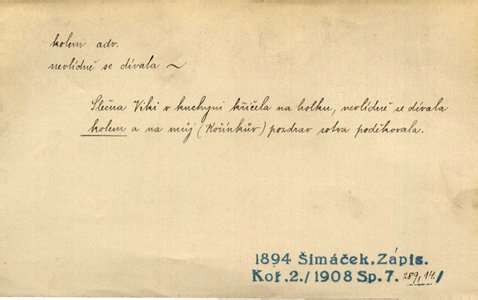 kolem adv.
nevlídně se dívala ~
Slečna Viki v kuchyni křičela na holku, nevlídně se dívala
kolem a na můj (Kořínkův) pozdrav sotva poděkovala.
1894 Šimáček. Zápis.
Koř. 2./1908 Sp. 7. 289, 14./